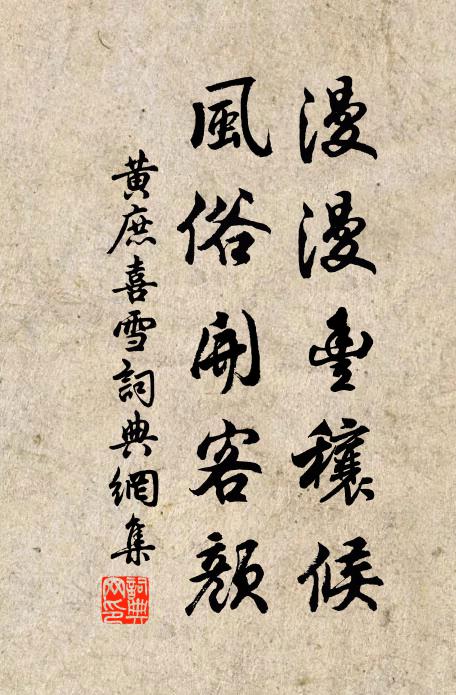 漫漫豐穰候
風俗開客顏
黃庶喜雪詞典網集
詞典网印